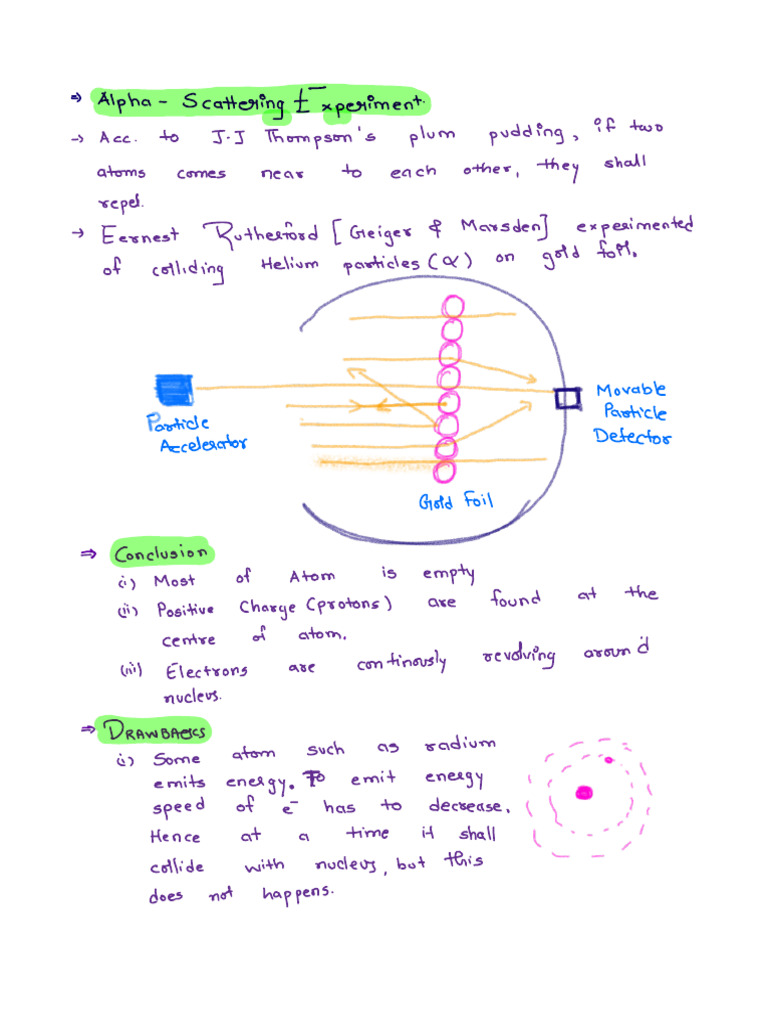 ⇒ Alpha - Scattering Experiment.
→ Acc. to J.J Thompson's plum pudding, if two
atoms comes near to each other, they shall
repel.
→ Eernest Rutherford [Geiger & Marsden] experimented
of colliding Helium particles (α) on gold foil.
Particle
Accelerator
Movable
Particle
Detector
Gold Foil
⇒ Conclusion
(i) Most of Atom is empty
(ii) Positive Charge (protons) are found at the
centre of atom.
(iii) Electrons are continously revolving around
nucleus.
⇒ DRAWBACKS
(i) Some atom such as radium
emits energy. To emit energy
speed of e⁻ has to decrease.
Hence at a time it shall
collide with nucleus, but this
does not happens.